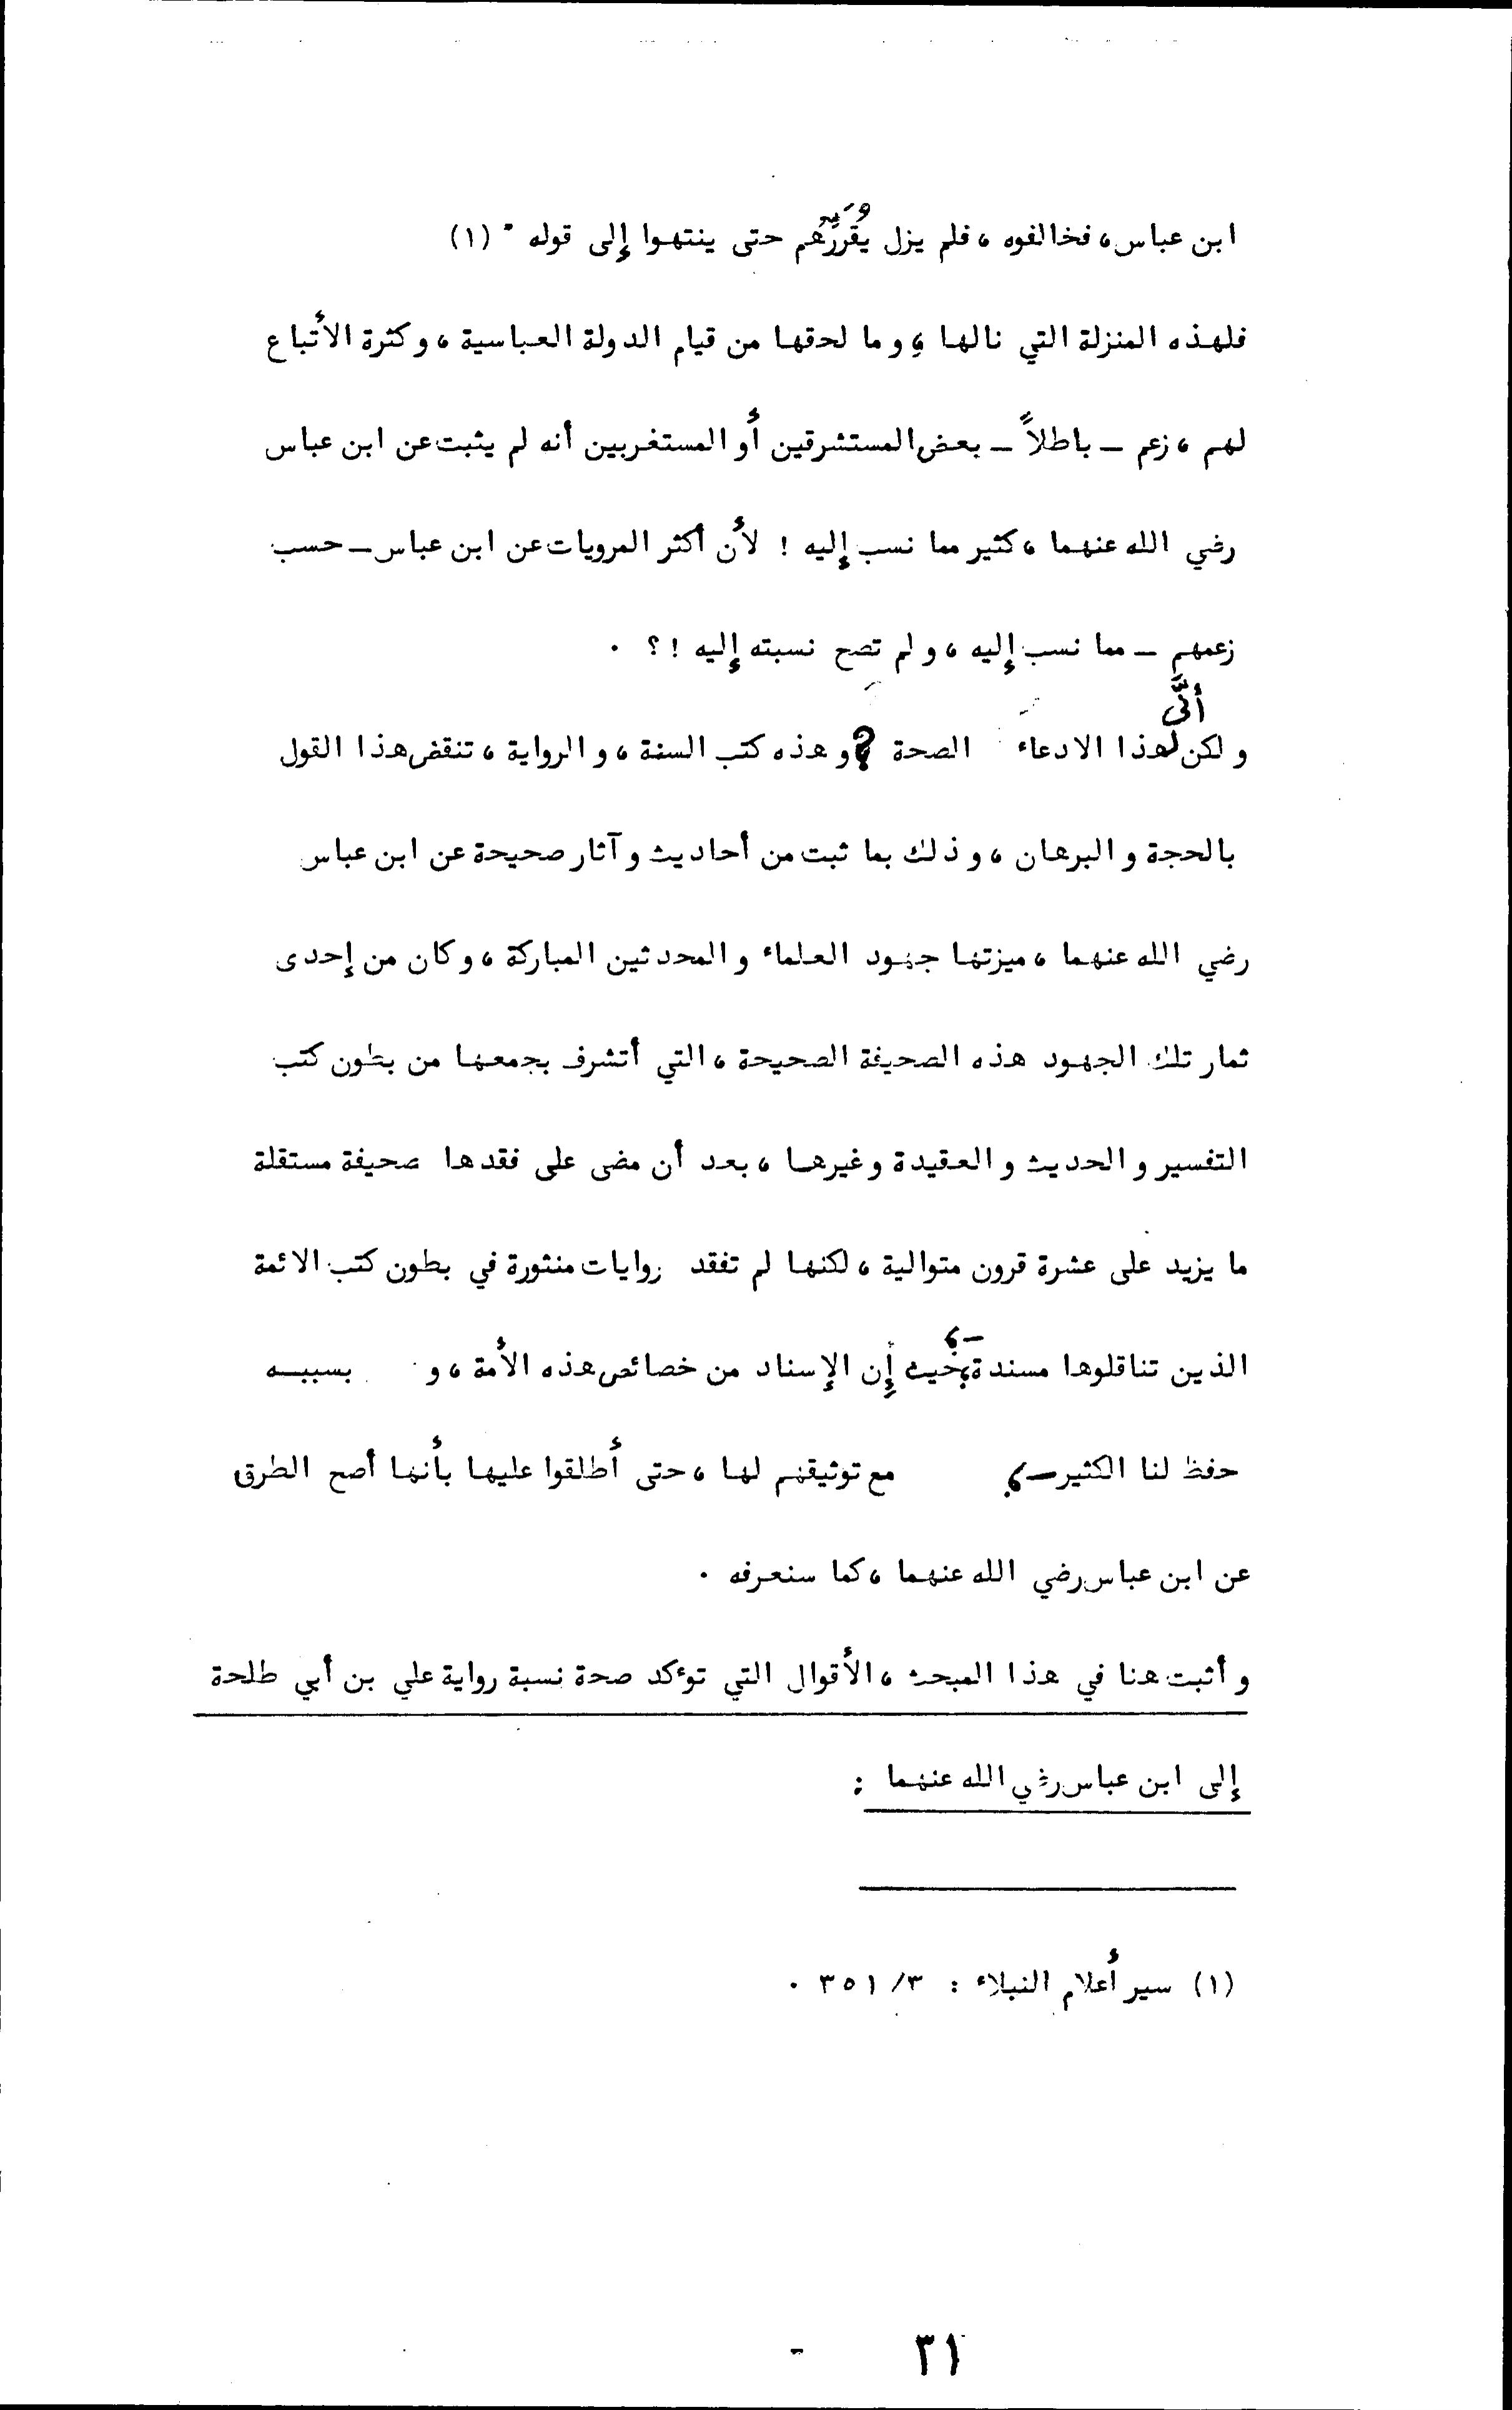 ابن عباس، فخالفوه، فلم يزل يُقرِّرُهم حتى ينتهوا إلى قوله " (١)
فلهذه المنزلة التي نالها، وما لحقها من قيام الدولة العباسية، وكثرة الأتباع
لهم، زعم ــ باطلاً ــ بعض المستشرقين أو المستغربين أنه لم يثبت عن ابن عباس
رضي الله عنهما، كثير مما نسب إليه ! لأن أكثر المرويات عن ابن عباس ــ حسب
زعمهم ــ مما نسب إليه، ولم تصح نسبته إليه !؟ .
ولكن أنَّى لهذا الادعاء الصحة ؟ وهذه كتب السنة، والرواية، تنقض هذا القول
بالحجة والبرهان، وذلك بما ثبت من أحاديث وآثار صحيحة عن ابن عباس
رضي الله عنهما، ميزتها جهود العلماء والمحدثين المباركة، وكان من إحدى
ثمار تلك الجهود هذه الصحيفة الصحيحة، التي أتشرف بجمعها من بطون كتب
التفسير والحديث والعقيدة وغيرها، بعد أن مضى على فقدها صحيفة مستقلة
ما يزيد على عشرة قرون متوالية، لكنها لم تفقد روايات منثورة في بطون كتب الائمة
الذين تناقلوها مسندة، ــ حيث إن الإسناد من خصائص هذه الأمة، و بسببه
حفظ لنا الكثير ــ، مع توثيقهم لها، حتى أطلقوا عليها بأنها أصح الطرق
عن ابن عباس رضي الله عنهما، كما سنعرفه .
وأثبت هنا في هذا المبحث، الأقوال التي توءكد صحة نسبة رواية علي بن أبي طلحة
إلى ابن عباس رضي الله عنهما :
(١) سير أعلام النبلاء : ٣/ ٣٥١ .
٣١